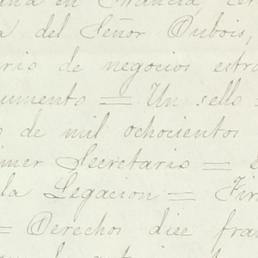 en Francia,
a del Señor Dubois,
ario de negocios estra
umento = Un sello =
s de mil ochocientos
imer Secretario = e
la Legacion = Fir
= Derechos diez fran